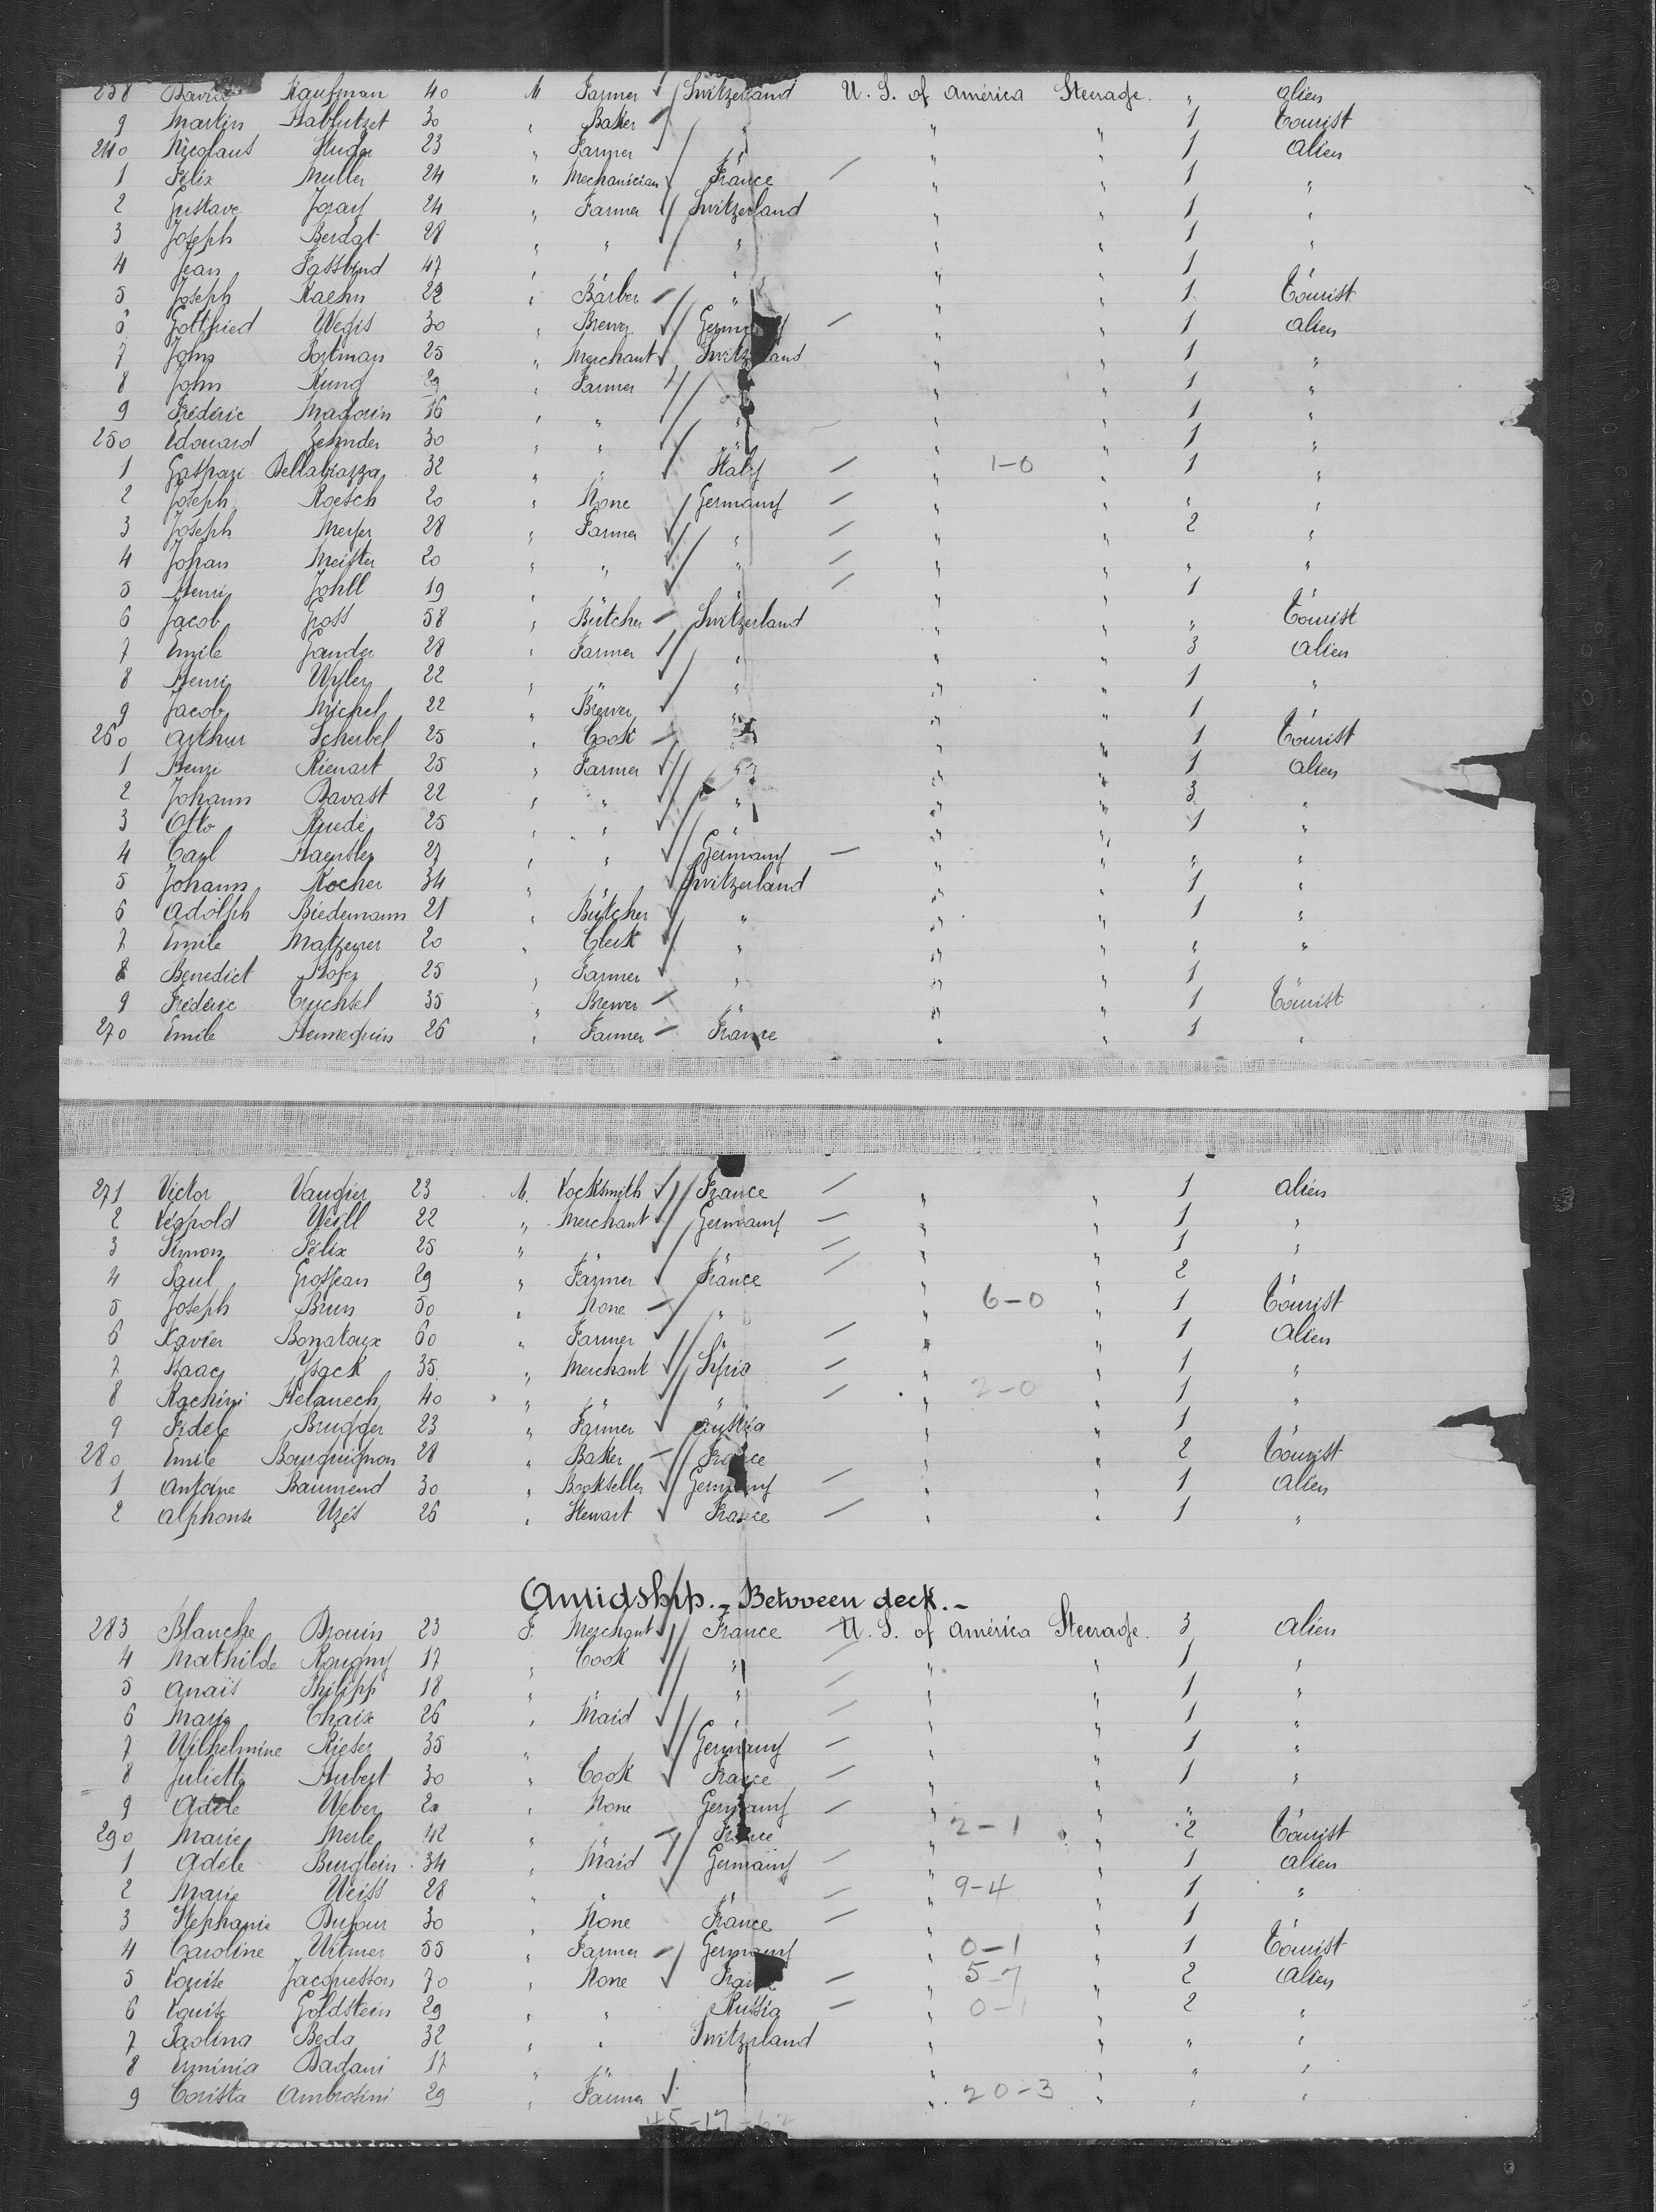 238 David Kaufman 40 M Farmer Switzerland U. S. of América Steerage " alien
9 Martin Hablutzet 30 " Baker " " " 1 Tourist
240 Nicolaus Huder 23 " Farmer " " " 1 alien
1 Félix Muller 24 " Mechanician France " " 1 "
2 Gustave Joray 24 " Farmer Switzerland " " 1 "
3 Joseph Berdat 28 " " " " " 1 "
4 Jean Fassbind 47 " " " " 1
5 Joseph Kaehn 22 " Barber " " " 1 Tourist
6 Gottfried Wegis 30 " Brewer Germany " " 1 alien
7 John Portman 25 " Merchant Switzerland " " 1 "
8 John Kung 29 " Farmer " " " 1 "
9 Fréderic Madorin 16 " " " " " 1 "
250 Edouard Zehnder 30 " " " " " 1 "
1 Gaspari Dellabiazza 32 " " Italy " 1-0 " 1 "
2 Joseph Roesch 20 " None Germany " " " "
3 Joseph Meyer 28 " Farmer " " " 2 "
4 Johan Meister 20 " " " " " " "
5 Henri Johll 19 " " " " 1
6 Jacob Gross 58 " Butcher Switzerland " " " Tourist
7 Emile Gander 28 " Farmer " " " 3 alien
8 Henri Wyler 22 " " " " " 1 "
9 Jacob Michel 22 " Brewer " " " 1
260 Arthur Scherbel 25 " Cook " " " 1 Tourist
1 Henri Rienart 25 " Farmer " " " 1 alien
2 Johann Davast 22 " " " " " 3 "
3 Otto Ruedi 25 " " " " 1 "
4 Carl Haensler 27 " " Germany " " " "
5 Johann Kocher 34 " Switzerland " " 1 "
6 Adolph Biedemann 21 " Butcher " " " 1 "
7 Emile Matzerer 20 " Clerk " " " " "
8 Benedict Hofer 25 " Farmer " " " 1
9 Fréderic Truchsel 35 " Brewer " " " 1 Tourist
270 Emile Hennequin 26 " Farmer France " " 1 "
271 Victor Vaugier 23 M. Locksmith France " " 1 alien
2 Léopold Weill 22 " Merchant Germany " " 1 "
3 Simon Félix 25 " " " " 1 "
4 Paul Grosjean 29 " Farmer France " " 2
5 Joseph Brun 50 " None " " 6-0 " 1 Tourist
6 Xavier Bonatoux 60 " Farmer " " 1 alien
7 Isaac Ysack 35 " Merchant Syria " " 1 "
8 Rachini Helanech 40 " " " " 2-0 " 1 "
9 Fidéle Brugger 23 " Farmer Austria " " 1
280 Emile Bourguignon 28 " Baker France " " 2 Tourist
1 Antoine Baumend 30 " Bookseller Germany " " 1 alien
2 Alphonse Uzés 26 " Stewart France " " 1 "
Amidship. - Between deck. -
283 Blanche Drouin 23 F. Merchant France U. S. of América Steerage. 3 alien
4 Mathilde Rougny 17 " Cook " " " 1 "
5 Anais Philipp 18 " " " " " 1 "
6 Marie Chaix 26 " Maid " " " 1 "
7 Wilhelmine Rieser 35 " " Germany " " 1 "
8 Juliette Hubert 30 " Cook France " " 1 "
9 Adèle Weber 20 " None Germany " " "
290 Marie Merle 42 " " France " 2-1 " 2 Tourist
1 Adéle Burglein 34 " Maid Germany " " 1 alien
2 Marie Weiss 28 " " " " 9-4 " 1 "
3 Stephanie Dufour 30 " None France " " 1
4 Caroline Witmer 55 " Farmer Germany " 0-1 " 1 Tourist
5 Louise Jacquesson 70 " None France " 5-7 " 2 alien
6 Louise Goldstein 29 " " Russia " 0-1 " 2 "
7 Paolina Beda 32 " " Switzerland " " " "
8 Erminia Dadani 17 " " " " " "
9 Corista Ambrosini 29 " Farmer " 20-3 " " "
45-17